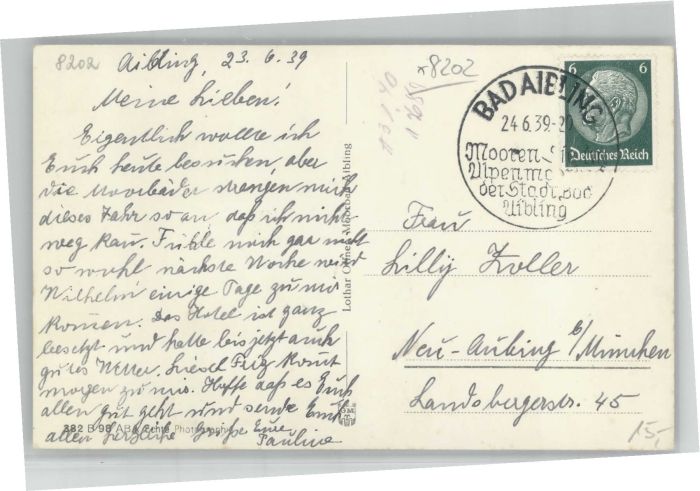 8202
Aibling, 23.6.39
Meine Lieben!
Eigentlich wollte ich
Euch heute besuchen, aber
die Moorbäder strengen mich
dieses Jahr so an, daß ich nicht
weg kan. Fühle mich gar nicht
so wohl nächste Woche wird
Wilhelm einige Tage zu mir
komen. Das Hotel ist ganz
besetzt und hatte bis jetzt auch
gutes Wetter. Liesel Friz komt
morgen zu mir. Hoffe daß es Euch
allen gut geht und sende Euch
allen herzliche Grüße Eure
Pauline
382 B 98 Echte Photographie
Lothar Bad Aibling
*8202
6 6
Deutsches Reich
BAD AIBLING
24.6.39-20
Mooren
Alpen
der Stadt Bad
Aibling
Frau
Lilly Zoller
Neu-Aubing b/München
Landsbergerstr. 45
15,-